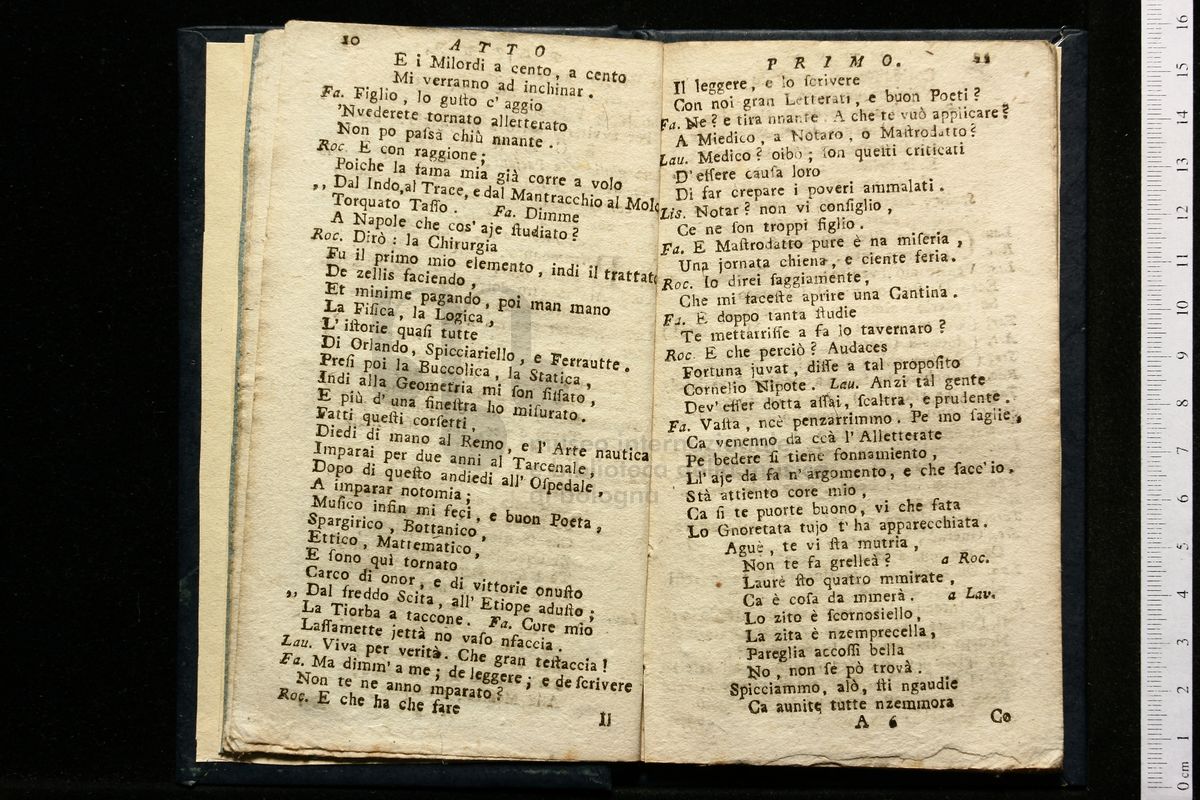 10
ATTO
E i Milordi a cento, a cento
Mi verranno ad inchinar.
Fa. Figlio, lo guſto c' aggio
'Nvederete tornato alletterato
Non po paſsà chiù nnante.
Roc. E con raggione;
Poiche la fama mia già corre a volo
„ Dal Indo, al Trace, e dal Mantracchio al Molo
Torquato Taſſo. Fa. Dimme
A Napole che cos' aje ſtudiato?
Roc. Dirò: la Chirurgia
Fu il primo mio elemento, indi il trattato
De zellis faciendo,
Et minime pagando, poi man mano
La Fiſica, la Logica,
L' iſtorie quaſi tutte
Di Orlando, Spicciariello, e Ferrautte.
Preſi poi la Buccolica, la Statica,
Indi alla Geometria mi ſon fiſſato,
E più d' una fineſtra ho miſurato.
Fatti queſti corſetti,
Diedi di mano al Remo, e l' Arte nautica
Imparai per due anni al Tarcenale,
Dopo di queſto andiedi all' Oſpedale,
A imparar notomia;
Muſico infin mi feci, e buon Poeta,
Spargirico, Bottanico,
Ettico, Mattematico,
E ſono quì tornato
Carco di onor, e di vittorie onuſto
„ Dal freddo Scita, all' Etiope aduſto;
La Tiorba a taccone. Fa. Core mio
Laſſamette jettà no vaſo nfaccia.
Lau. Viva per verità. Che gran teſtaccia!
Fa. Ma dimm' a me; de leggere; e de ſcrivere
Non te ne anno mparato?
Roc. E che ha che fare
Il
PRIMO.
11
Il leggere, e lo ſcrivere
Con noi gran Letterati, e buon Poeti?
Fa. Ne? e tira nnante. A che te vuò applicare?
A Miedico, a Notaro, o Maſtrodatto?
Lau. Medico? oibò; ſon queſti criticati
D' eſſere cauſa loro
Di far crepare i poveri ammalati.
Lis. Notar? non vi conſiglio,
Ce ne ſon troppi figlio.
Fa. E Maſtrodatto pure è na miſeria,
Una jornata chiena, e ciente feria.
Roc. Io direi ſaggiamente,
Che mi faceſte aprire una Cantina.
Fa. E doppo tanta ſtudie
Te mettarriſſe a fa lo tavernaro?
Roc. E che perciò? Audaces
Fortuna juvat, diſſe a tal propoſito
Cornelio Nipote. Lau. Anzi tal gente
Dev' eſſer dotta aſſai, ſcaltra, e prudente.
Fa. Vaſta, ncè penzarrimmo. Pe mo ſaglie,
Ca venenno da ccà l' Alletterate
Pe bedere ſi tiene fonnamiento,
Ll' aje da fa n' argomento, e che ſacc' io.
Stà attiento core mio,
Ca ſi te puorte buono, vi che fata
Lo Gnoretata tujo t' ha apparecchiata.
Aguè, te vi ſta mutria,
Non te fa grelleà? a Roc.
Laurè ſto quatro mmirate,
Ca è coſa da mmerà. a Lav.
Lo zito è ſcornosiello,
La zita è nzemprecella,
Pareglia accoſſì bella
No, non ſe pò trovà.
Spicciammo, alò, ſti ngaudie
Ca aunite tutte nzemmora
A 6
Co
museo internazionale
biblioteca della musica
di bologna
0 cm 1 2 3 4 5 6 7 8 9 10 11 12 13 14 15 16